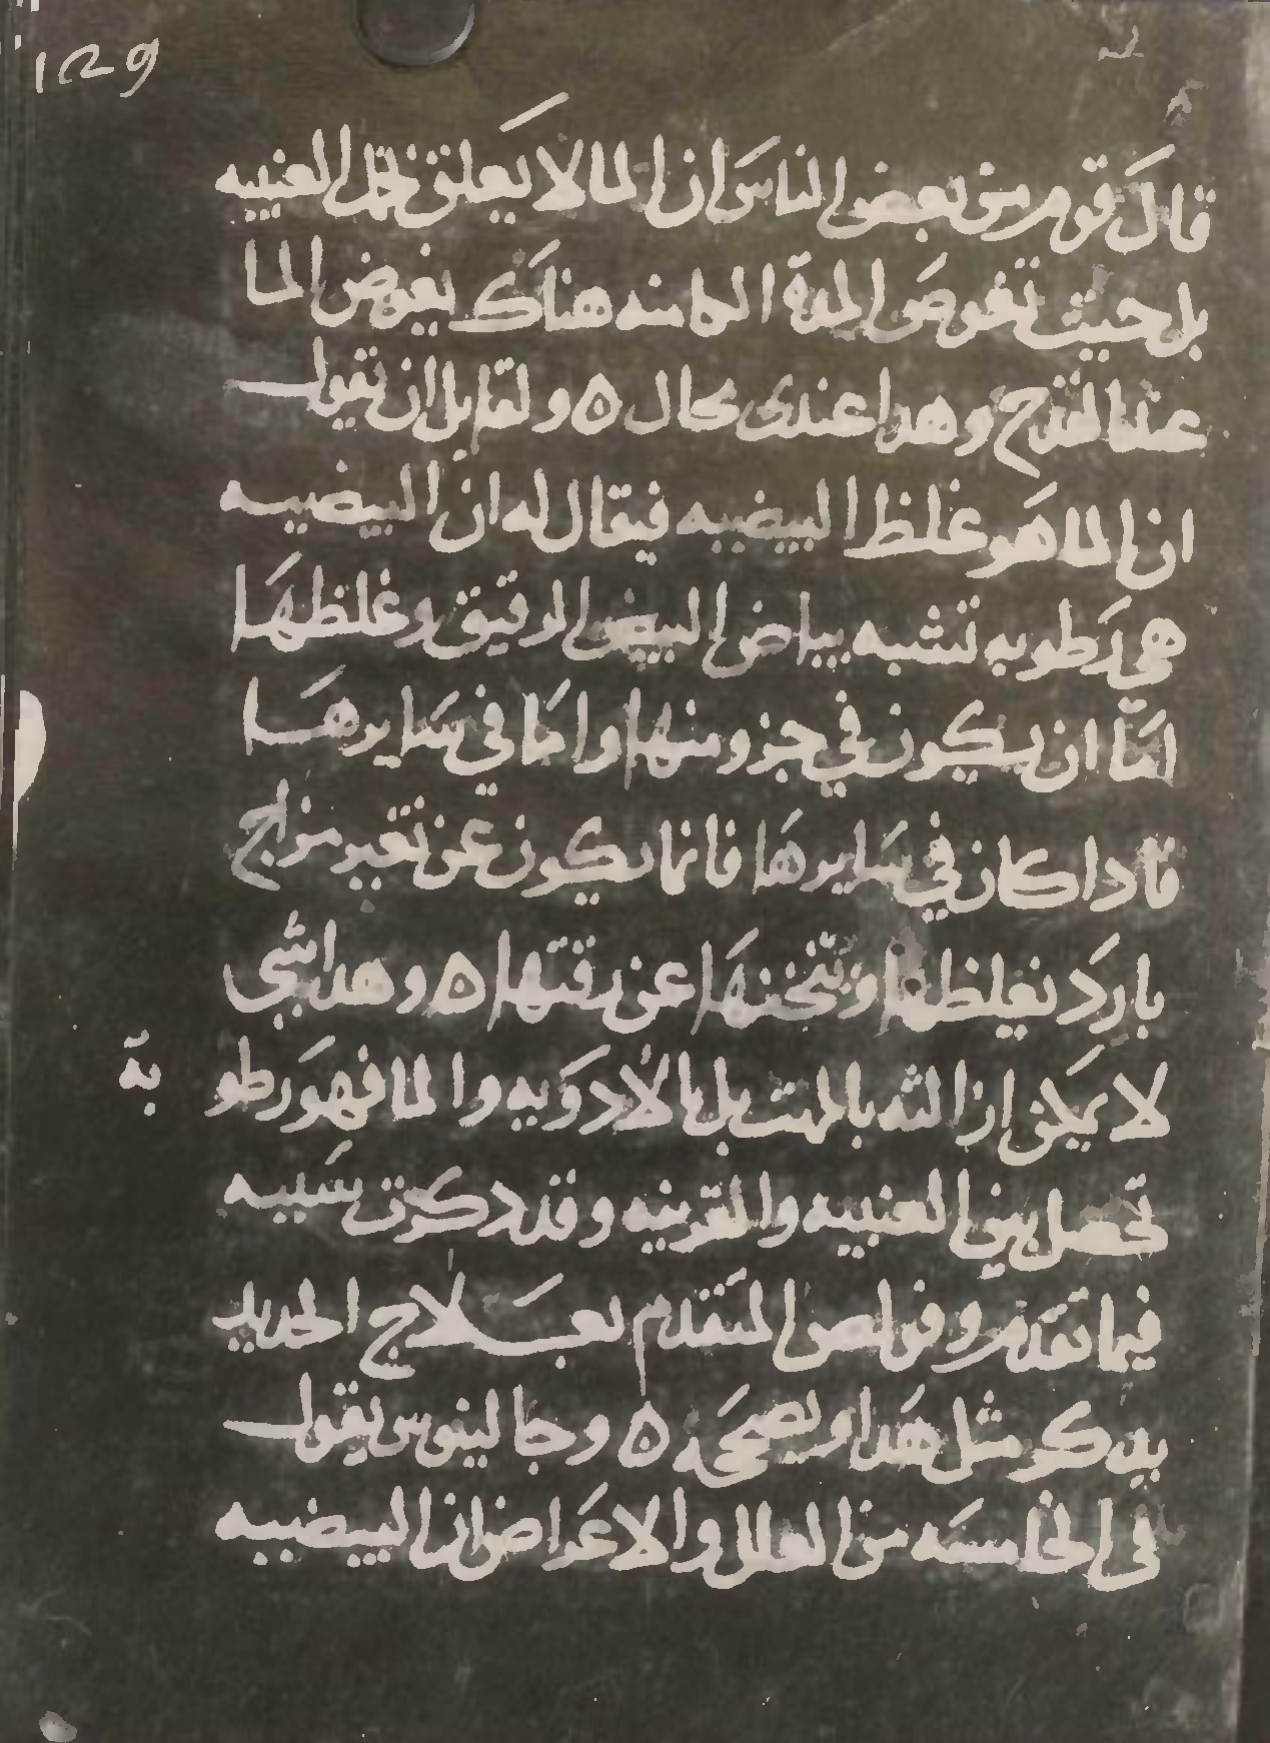 129
قال قوم من بعض الناس ان الما لا يعلق بخمل العنبيه
بل حيث تغوص المدة الكامنه هناك يغوص الما
عند القدح وهدا عندى محال ٥ ولقايل ان يقول
ان الما هو غلظ البيضيه فيقال له ان البيضيه
هى رطوبه تشبه بياض البيض الرقيق وغلظها
امّا ان يكون في جزو منها واما في سايرها
فادا كان في سايرها فانما يكون عن تغير مزاج
بارد يغلظها ويثخنها عن رقتها ٥ وهدا شى
لا يمكن ازالته بالمهت بل بالادويه والما فهو رطو بة
تحصل بين العنبيه والقرنيه وقد دكرت سببيه
فيما تقدم وفي لص المتقدم بعلاج الحديد
يدكر مثل هدا ويصححه ٥ وجالينوس يقول
فى الخامسه من العلل والاعراض ان البيضيه